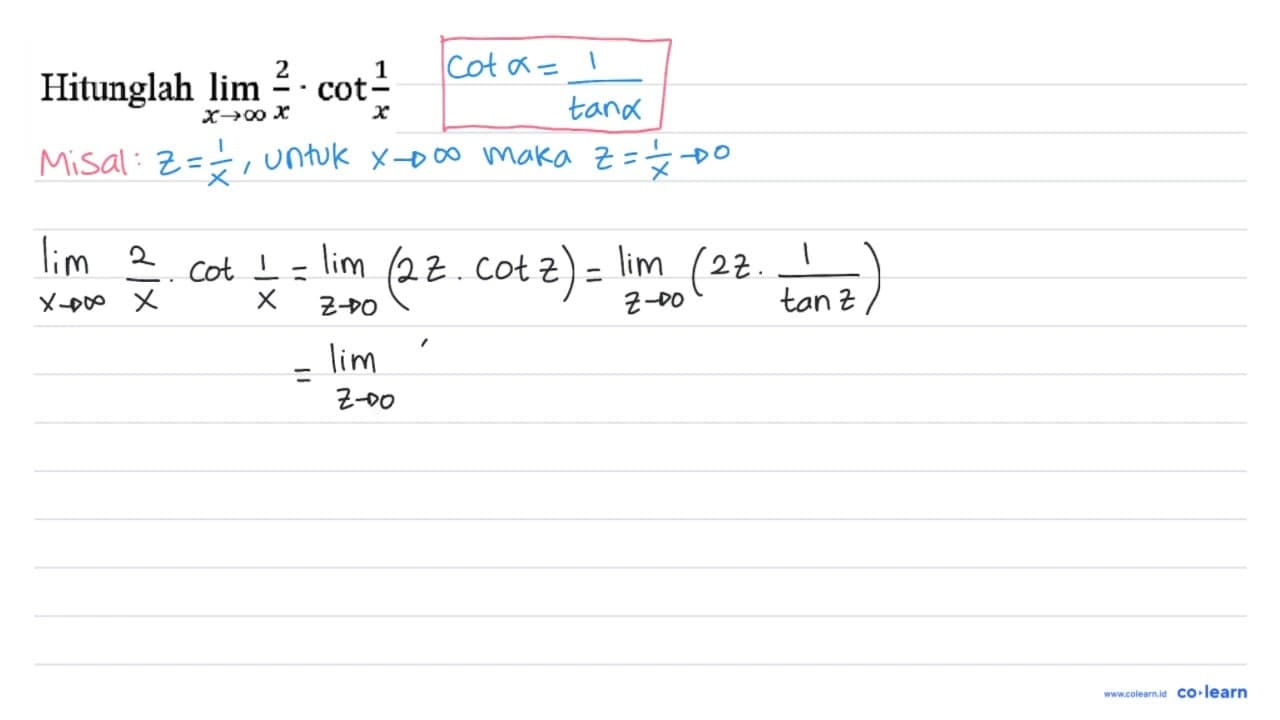 Hitunglah lim x→∞ 2/x · cot 1/x
cot α = 1/tanα
Misal: z = 1/x, untuk x→∞ maka z = 1/x →0
lim x→∞ 2/x . cot 1/x = lim z→0 (2z . cot z) = lim z→0 (2z . 1/tan z)
= lim z→0
www.colearn.id co·learn